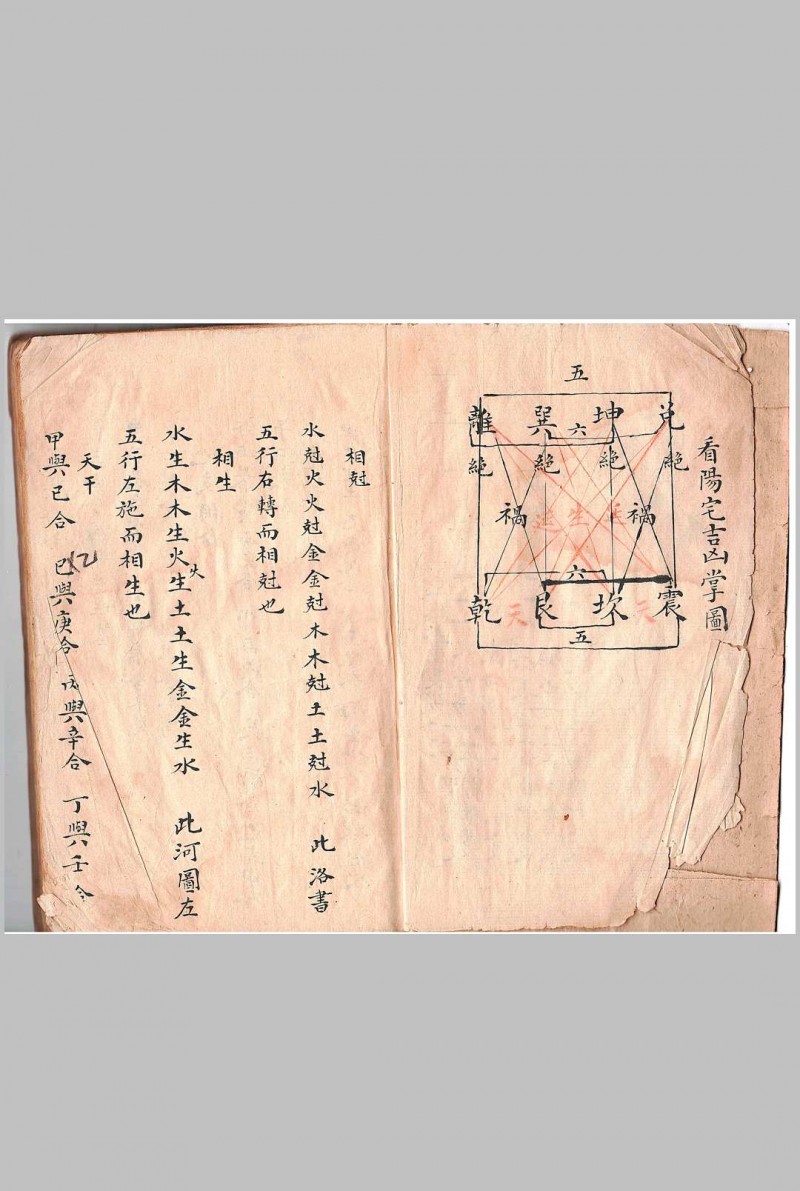 看陽宅吉凶掌圖
五
兌 坤 巽 離
六
絶 絶 絶 絶
禍 延 生 延 禍
六
震 天 坎 艮 天 乾
五
相尅
水尅火火尅金金尅木木尅土土尅水 此洛書
五行右轉而相尅也
相生
水生木木生火火生土土生金金生水 此河圖左
五行左施而相生也
天干
甲與已合 乙與庚合 丙與辛合 丁與壬合